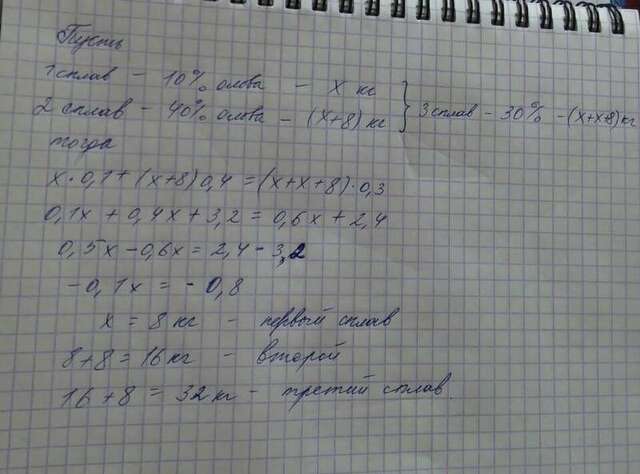 Пусть
1 сплав - 10% олова - х кг
2 сплав - 40% олова - (х+8) кг } 3 сплав - 30% - (х+х+8) кг
тогда
х·0,1 + (х+8)0,4 = (х+х+8)·0,3
0,1х + 0,4х + 3,2 = 0,6х + 2,4
0,5х - 0,6х = 2,4 - 3,2
-0,1х = -0,8
х = 8 кг - первый сплав
8+8 = 16 кг - второй
16+8 = 32 кг - третий сплав